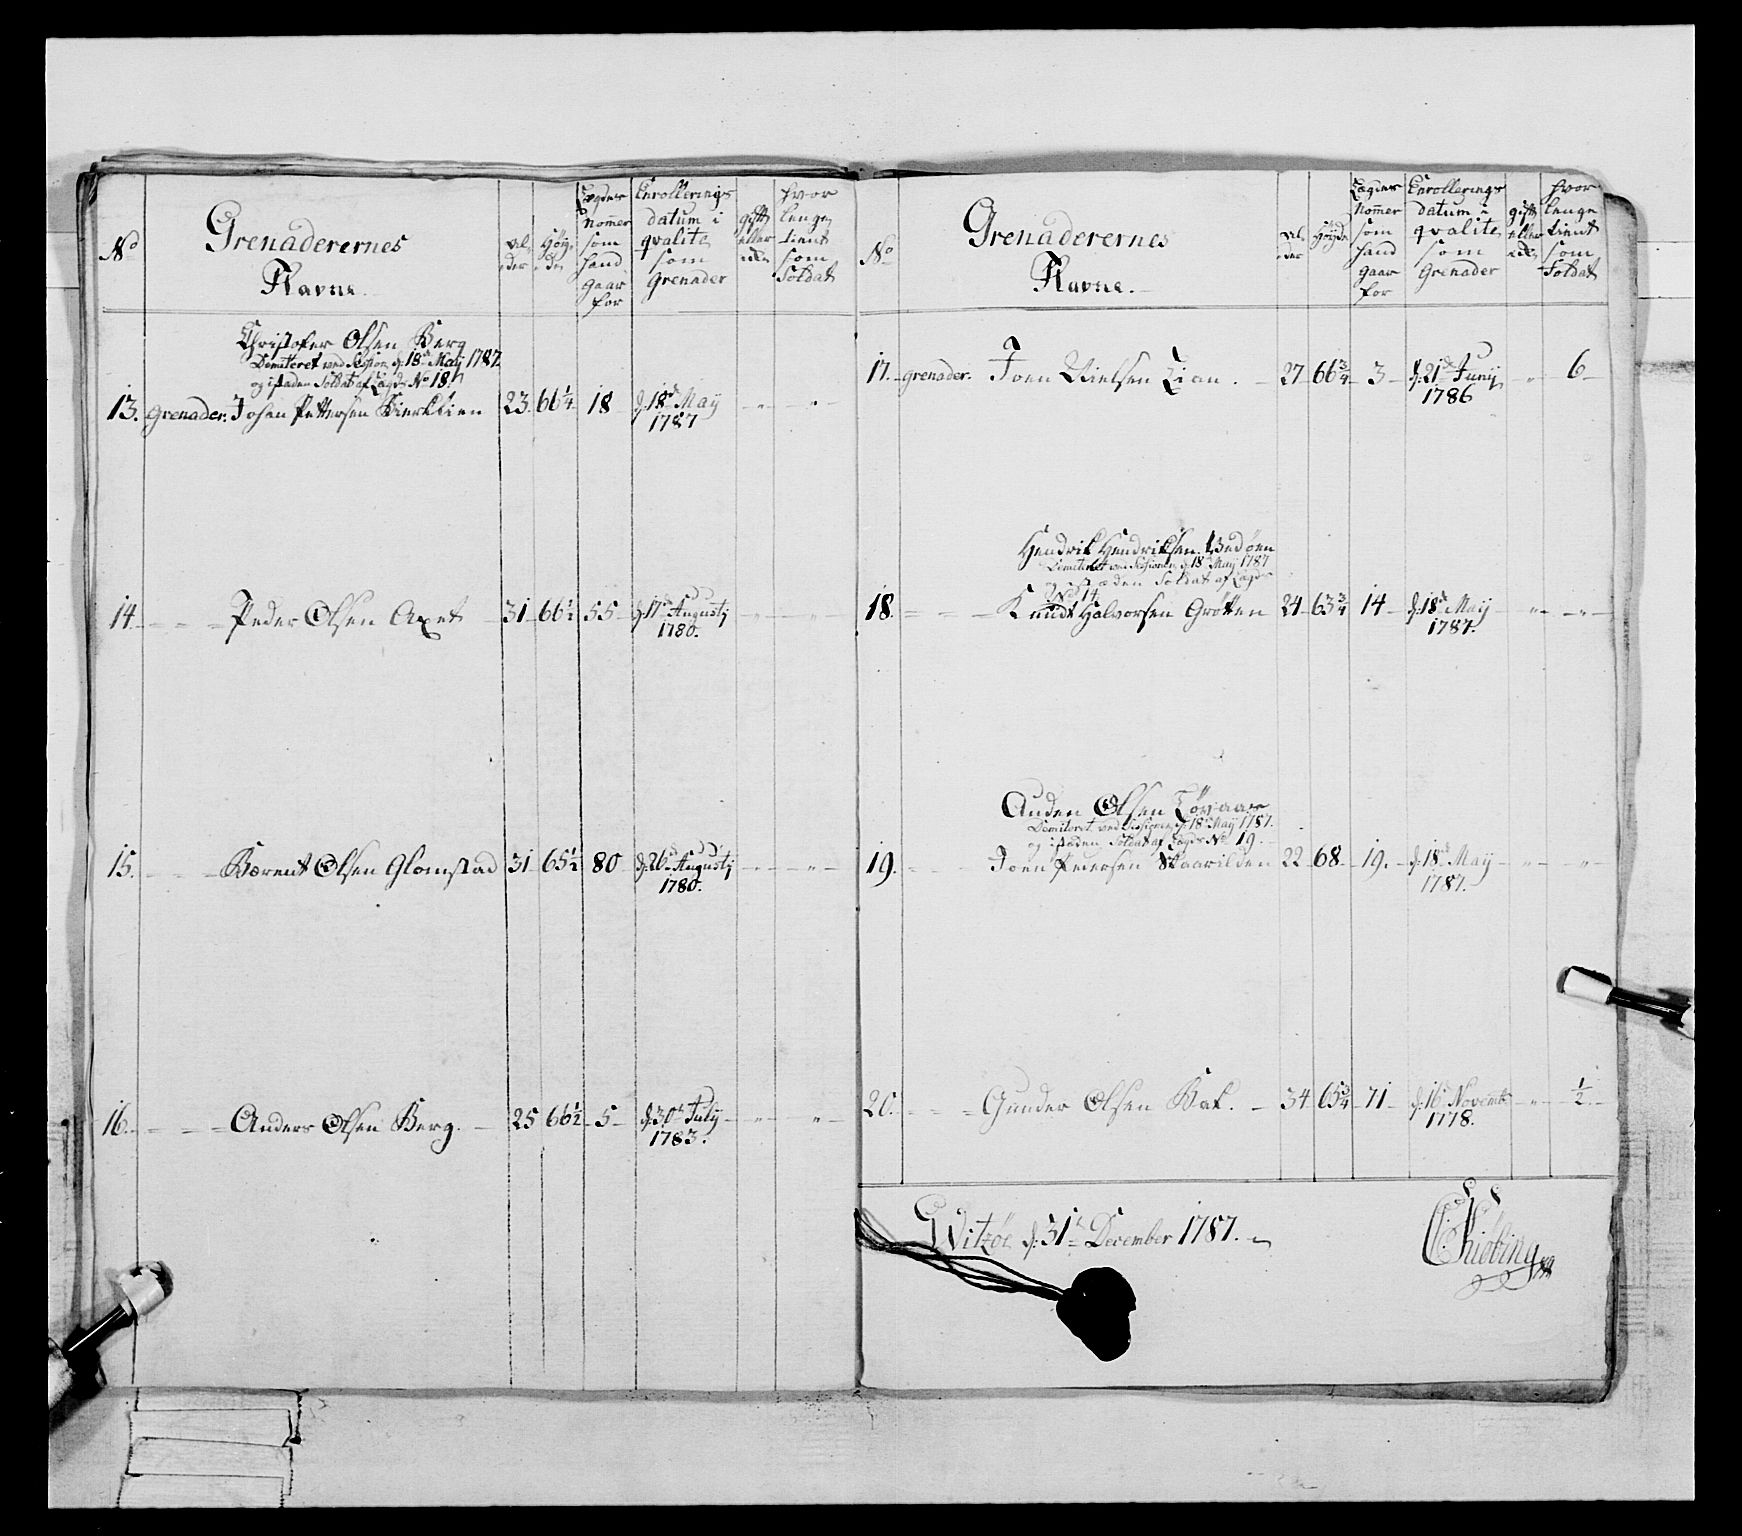 No
Grenaderernes
Navne.
al
der
Høig
de
Lægdets
Nomer
som
hand
gaar
for
Enrollerings
datum i
qvalite
som
Grenader
gift
eller
ei
hvor
lenge
tient
som
Soldat
Christofer Olsen Berg
Demitteret ved Session d: 18de May 1787
og istæden Soldat af Lægds No 18.
13. Grenader. Johan Pettersen Bierklien 23. 66¼ 18 d: 18de May
1787
14 Peder Olsen Axet 31 66½ 55 d: 17de Augustj
1780.
15. Bærent Olsen Glomstad 31 65½ 80 d: 26de Augustj
1780.
16. Anders Olsen Berg. 25 66½ 5 d: 30te July
1783.
No
Grenaderernes
Navne.
al
der
Høigde
Lægdets
Nomer
som
hand
gaar
for
Enrollerings
datum i
qvalite
som
Grenader
gift
eller
ei
hvor
lenge
tient
som
Soldat
17. Grenader. Joen Nielsen Lian. 27 66¾ 3 d: 21de Junij 6
1786
Hendrik Hendriksen Vedøen
Demiteret ved Sessionen d: 18de May 1787
og istæden Soldat af Lægds
No 14
18. Knudt Halvorsen Grøtten 24 63¾ 14 d: 18de May
1787.
Anden Olsen
Demiteret ved Sessionen d: 18de Maij 1787.
og istæden Soldat af Lægds No 19.
19. Joen Pedersen Skaarilden 22 68 19. d: 18de May
1787.
20. Gunder Olsen Bak. 34 65¾ 71 d: 16de Novemb ½
1778.
Witzøe d: 31te December 1787.